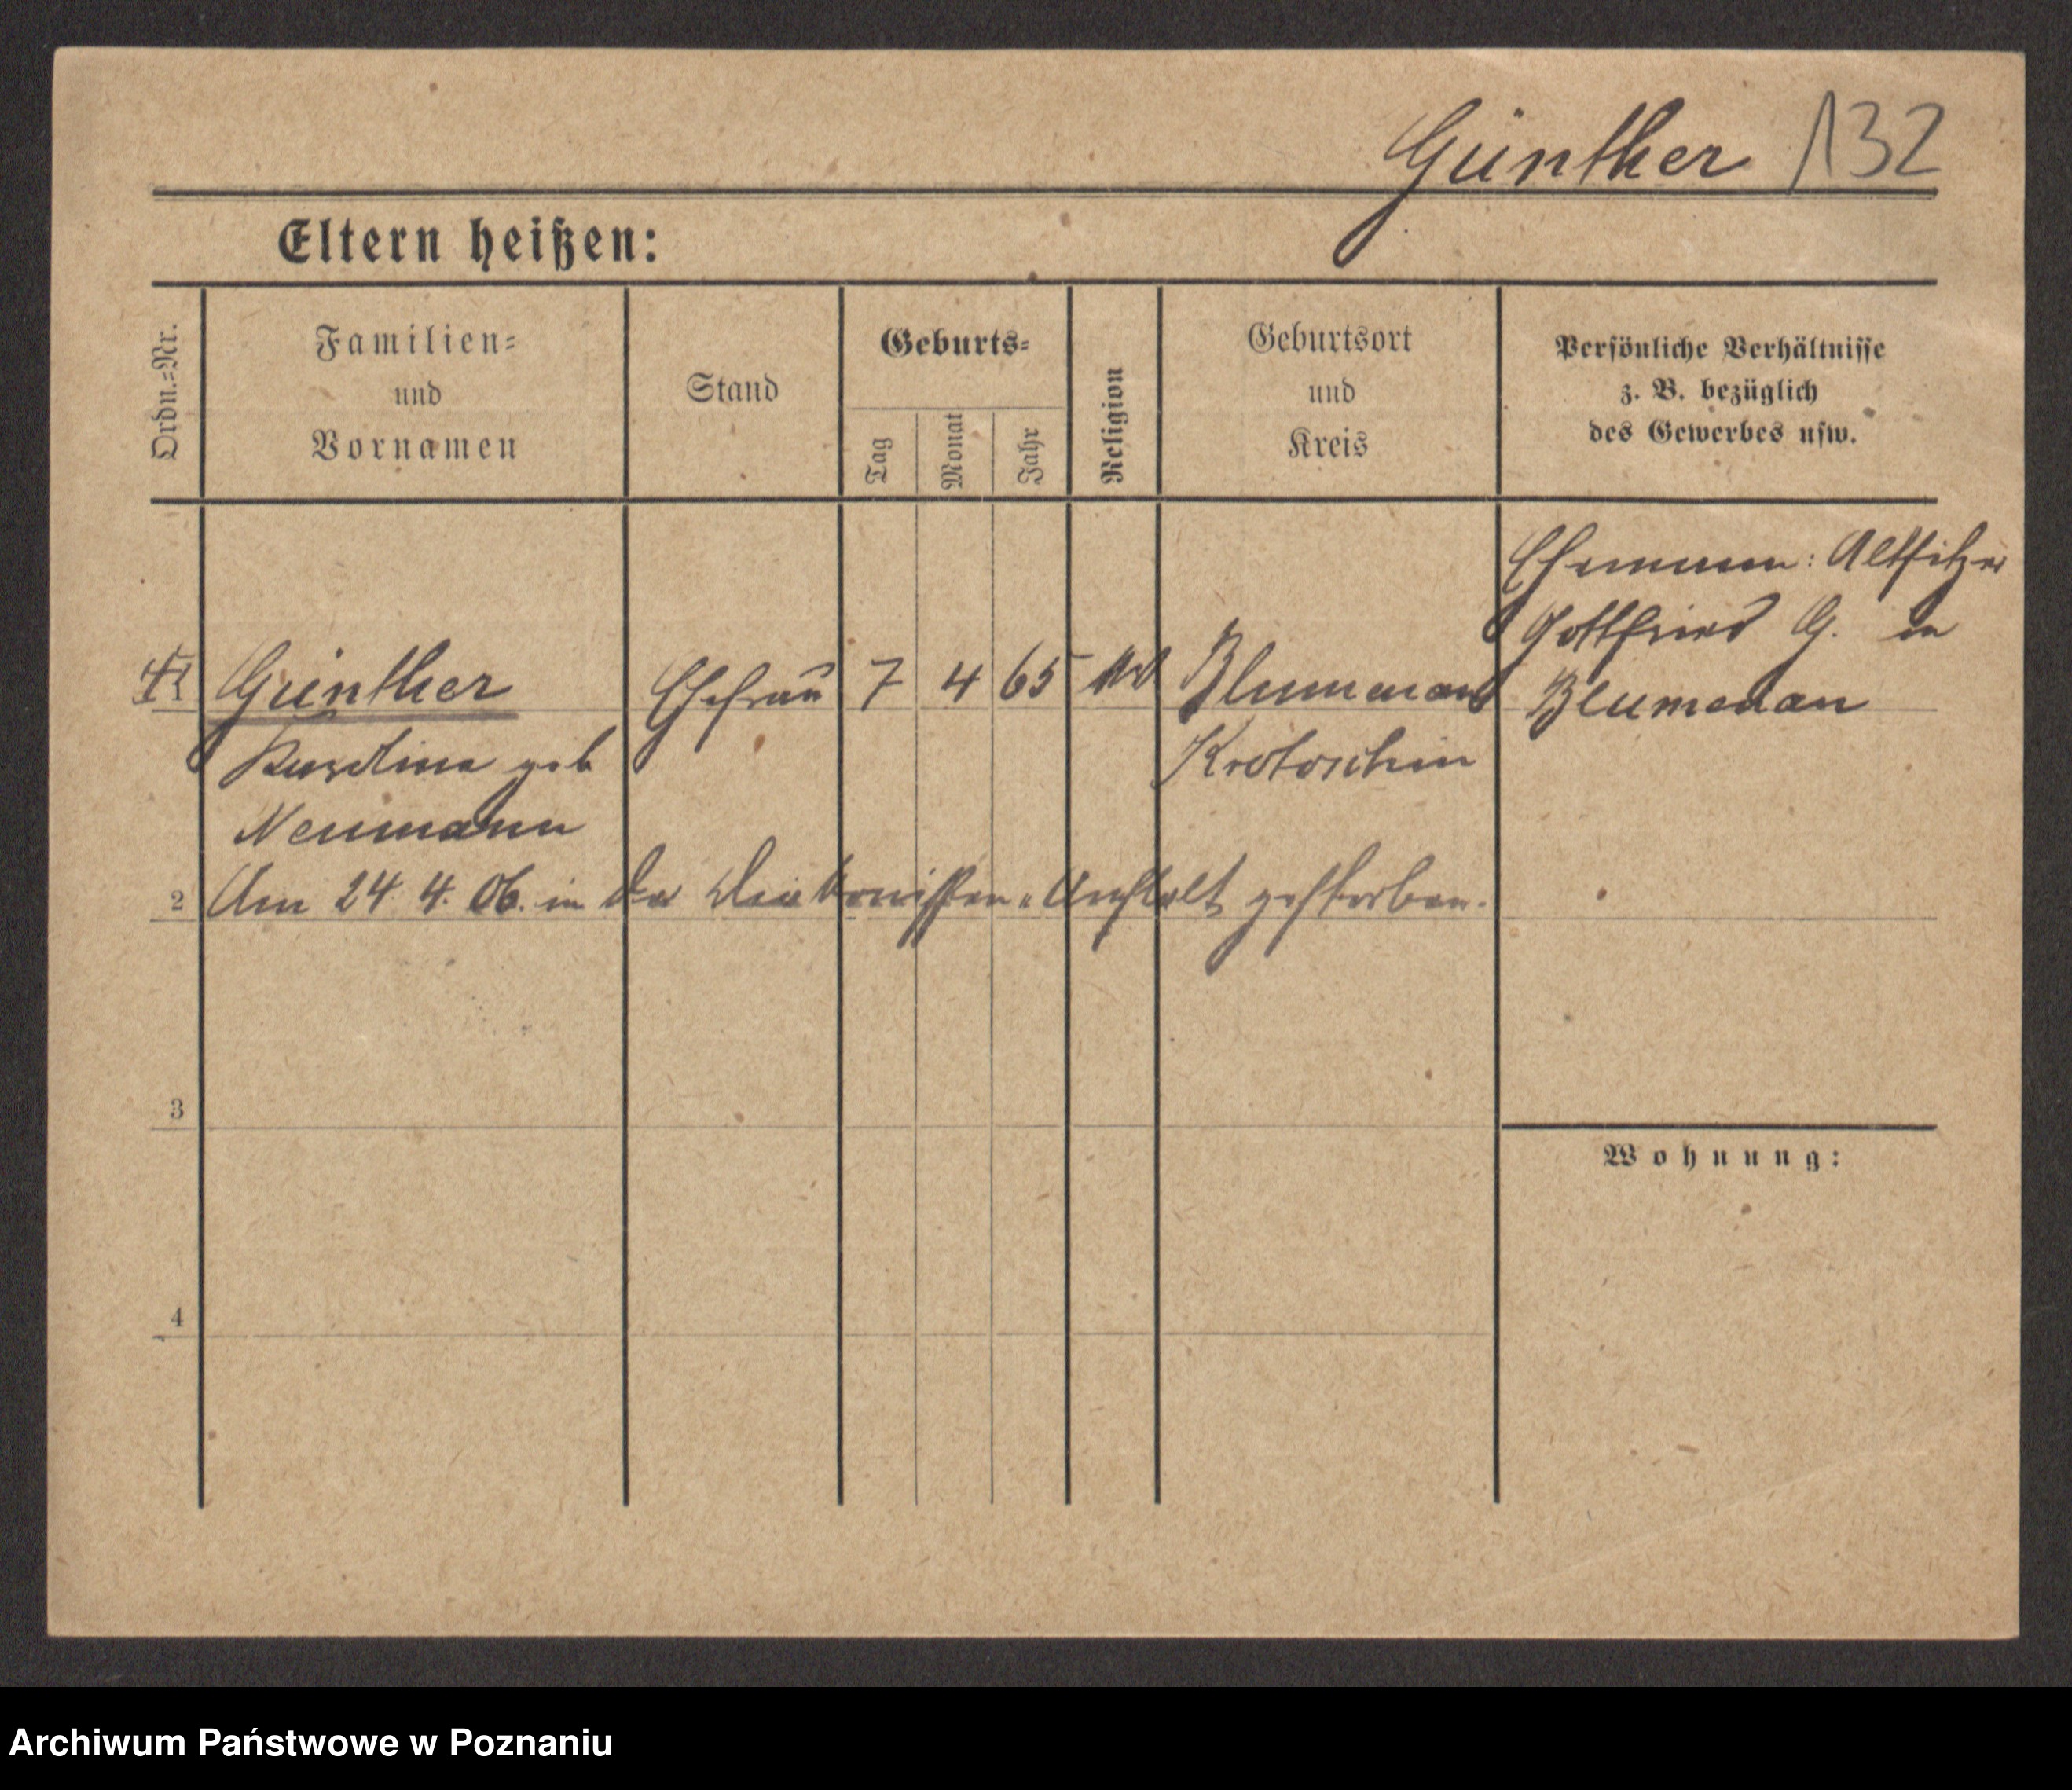 Günther 132
Eltern heißen:
Ordn.=Nr.
Familien=
und
Vornamen
Stand
Geburts=
Tag
Monat
Jahr
Religion
Geburtsort
und
Kreis
Persönliche Verhältnisse
z. B. bezüglich
des Gewerbes usw.
Ehemann: Altsitzer
Gottfried G. in
Blumenau
Günther Ehefrau 7 4 65 Blumenau
geb Krotoschin
Neumann
2 Am 24. 4. 06. in der Diakonissen-Anstalt gestorben.
3
Wohnung:
4
Archiwum Państwowe w Poznaniu